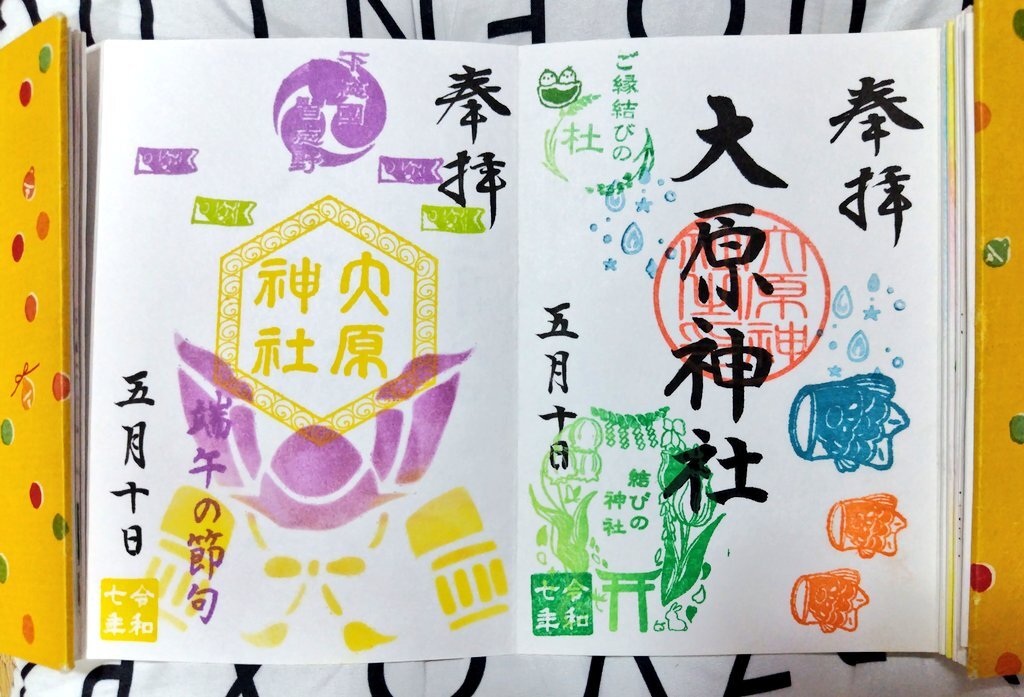 奉拝
ご縁結びの
杜
大原神社
大原神社
五月十日
結びの
神社
令和
七年
奉拝
下総國
習志野
大原
神社
端午の節句
五月十日
令和
七年